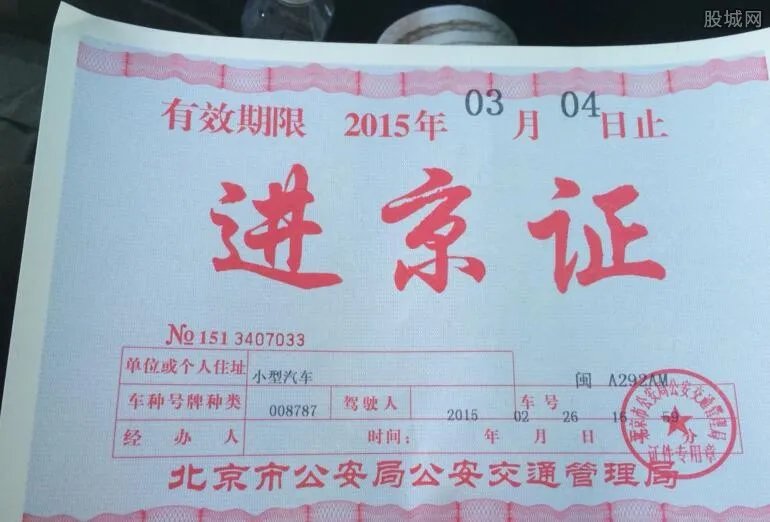 股城网
有效期限 2015年 03 月 04 日止
进京证
№ 151 3407033
单位或个人住址 小型汽车 闽 A292AM
车种号牌种类 008787 驾驶人 车号
2015 02 26 16 59
经办人 时间： 年 月 日 分
北京市公安局公安交通管理局
北京市公安局公安交通管理局
证件专用章